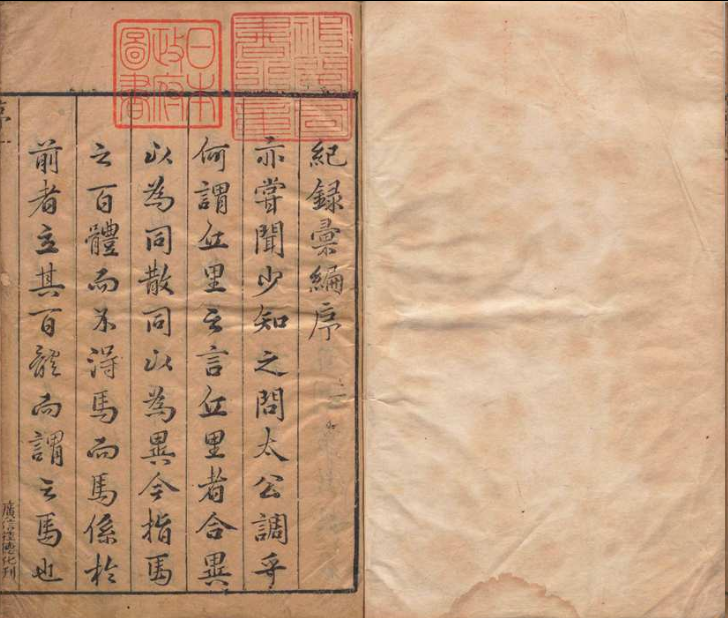 紀録彙編序
亦嘗聞少知之問太公調乎
何謂丘里之言丘里者合異
以為同散同以為異今指馬
之百體而不得馬而馬係於
前者立其百體而謂之馬也
序一
日本
政府
圖書